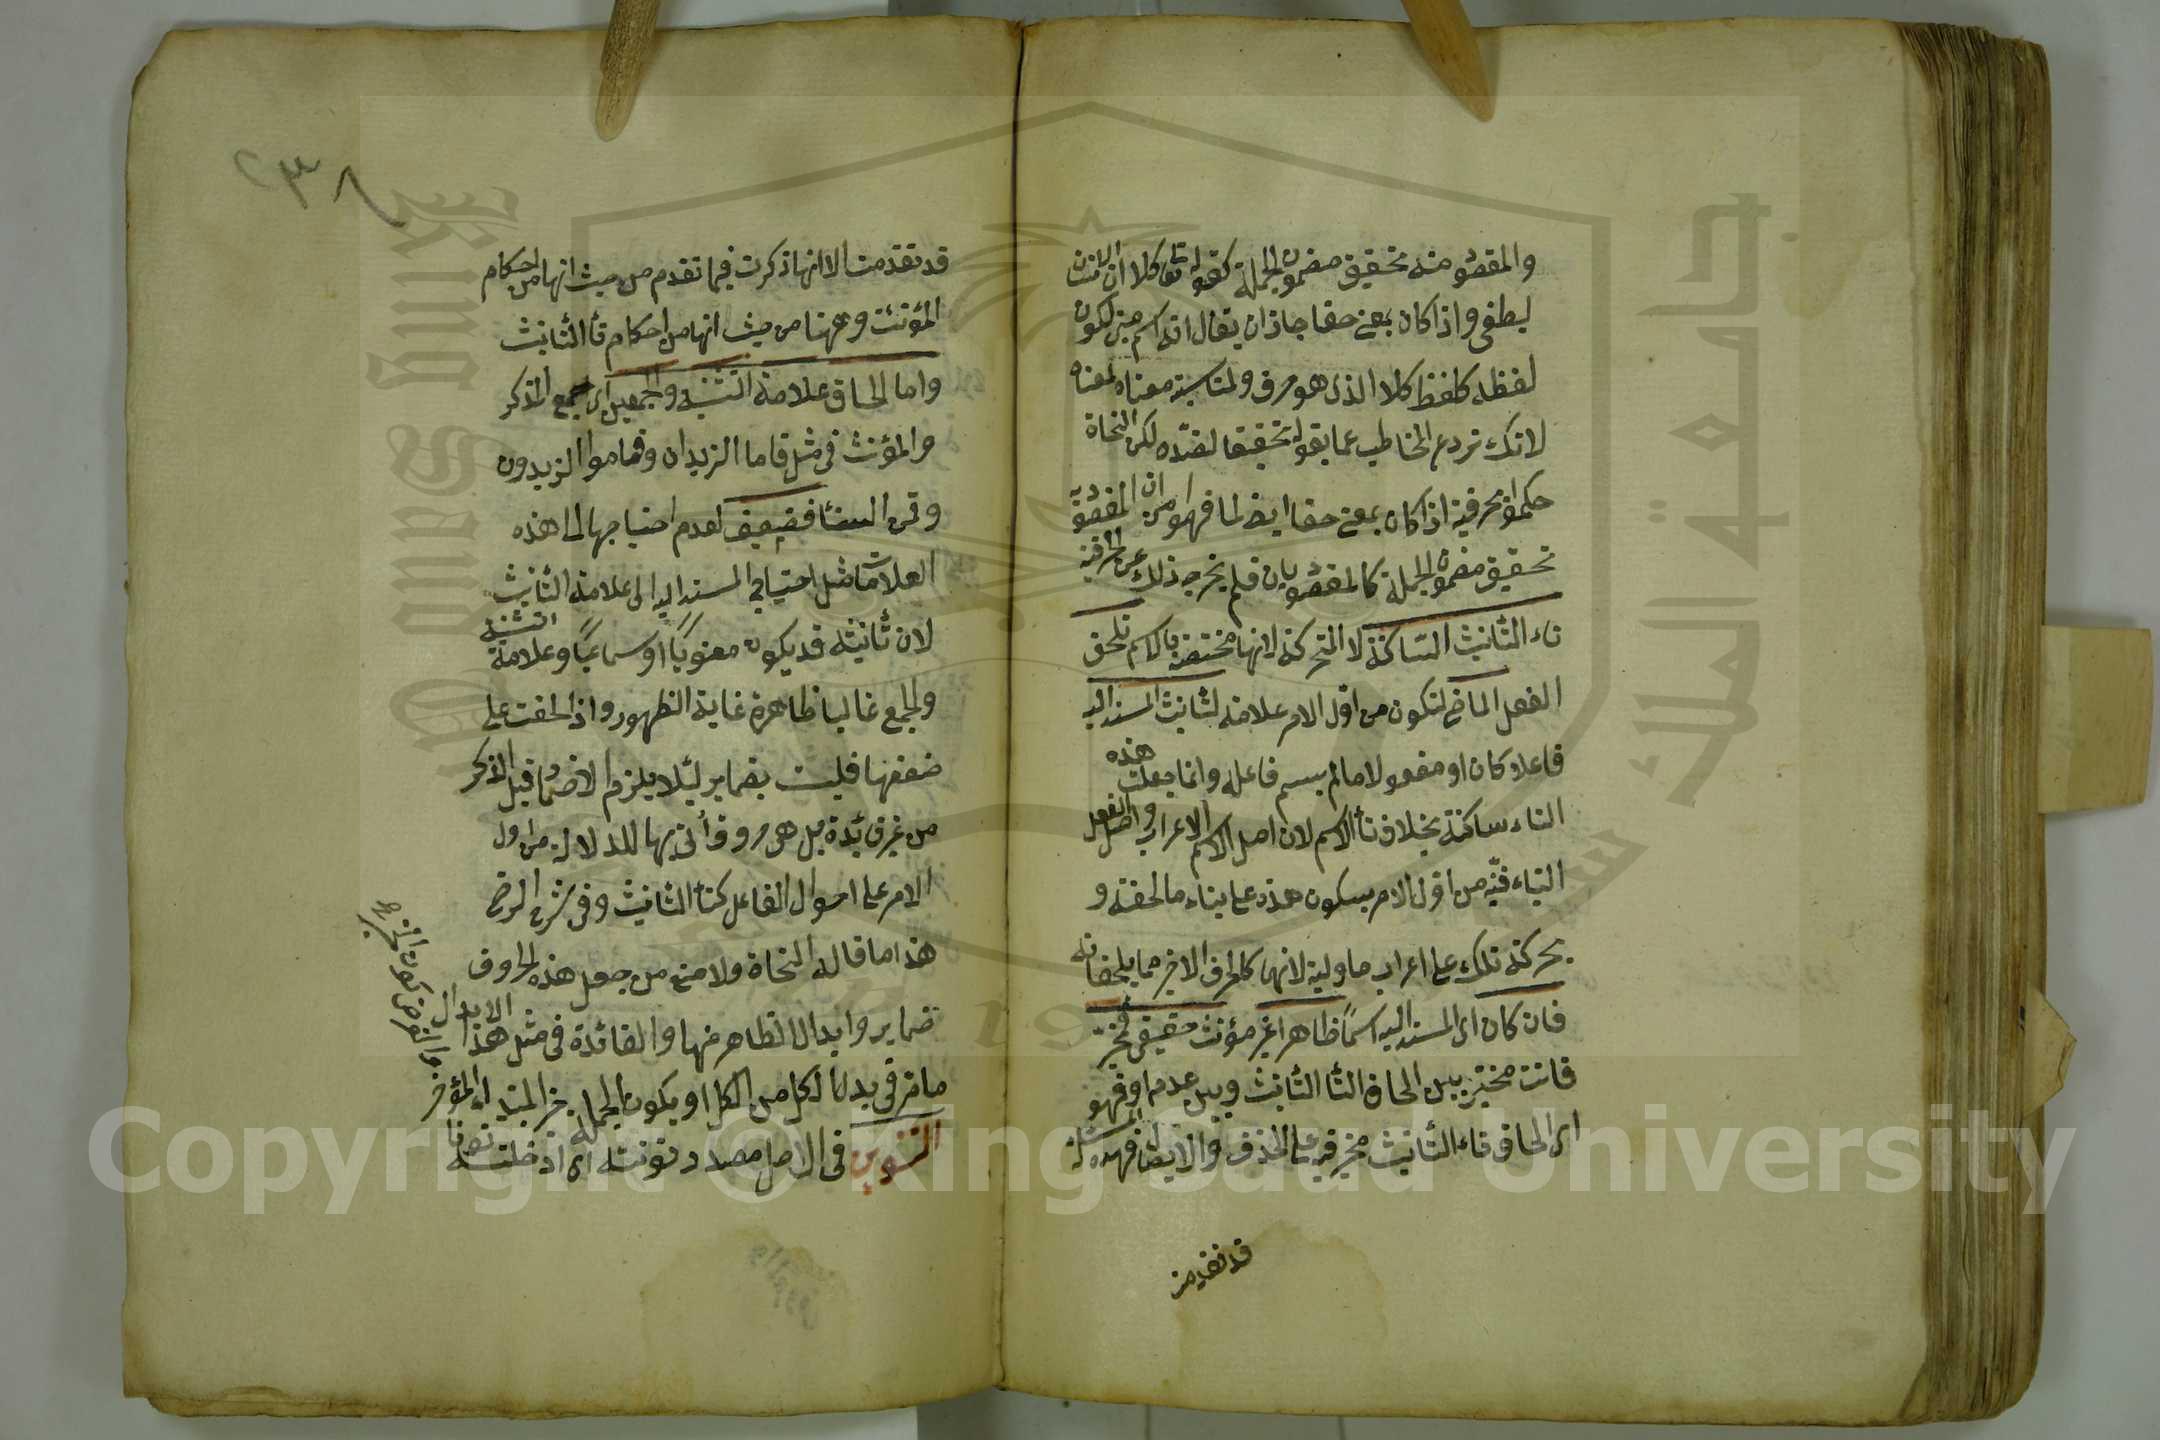 والمقصود منه تحقيق مضمون الجملة كقوله تعالى كلا ان الانسان
ليطغى واذا كان بمعنى حقا جاز ان يقال انه اسم حينئذ لكون
لفظه كلفظ كلا الذى هو حرف ولمناسبة معناه لمعناه
لانك تردع المخاطب عما يقوله تحقيقا لضده لكن النحاة
حكموا بحرفية اذا كان بمعنى حقا ايضا لما فهموا من ان المقصود به
تحقيق مضمون الجملة كالمقصود بان فلم يخرجه ذلك عن الحرفية
تاء التأنيث الساكنة لا المتحركة لانها مختصة بالاسم تلحق
الفعل الماضى لتكون من اول الامر علامة لتأنيث المسند اليه
فاعلا كان او مفعولا ما لم يسم فاعله وانما جعلت هذه
التاء ساكنة بخلاف تاء الاسم لان اصل الاسم الاعراب واصل الفعل
البناء فنبه من اول الامر بسكون هذه على بناء ما لحقته و
بحركة تلك على اعراب ما وليته لانهما كالحرف الاخير مما يلحقانه
فان كان اى المسند اليه اسما ظاهرا غير مؤنث حقيقى فمخير
فانت مخير بين الحاق التاء التأنيث وبين عدمه او فهو
اى الحاق تاء التأنيث مخير فيه على الحذف والايصال فهذه المسئلة
قد تقدمت
٢٣٨
قد تقدمت الا انها ذكرت فيما تقدم من حيث انها من احكام
المؤنث وههنا من حيث انها من احكام تاء التأنيث
واما الحاق علامة التثنية والجمعين اى جمع المذكر
والمؤنث فى مثل قاما الزيدان وقاموا الزيدون
وقمن النساء فضعيف لعدم احتياجها الى هذه
العلامات مثل احتياج المسند اليه الى علامة التأنيث
لان تأنيثه قد يكون معنويا او سماعيا وعلامة التثنية
والجمع غالبا ظاهرة غاية الظهور واذا لحقت على
ضعفها فليست بضماير ليلا يلزم الاضمار قبل الذكر
من غير فائدة بل هى حروف اتى بها للدلالة من اول
الامر على احوال الفاعل كتاء التأنيث وفى شرح الرضى
هذا ما قاله النحاة ولا منع من جعل هذه الحروف
ضماير وابدال الظاهر منها والفائدة فى مثل هذا الابدال
ما مر فى بدل الكل من الكل او يكون الجملة خبر المبتداء المؤخر
التنوين فى الاصل مصدر نونته اى ادخلته نونا